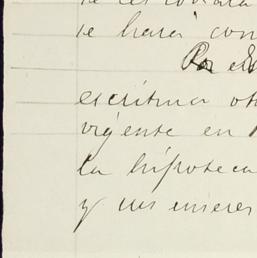 se hará con
Por el
escritura ot
vigente en
la hipoteca
y sus interes